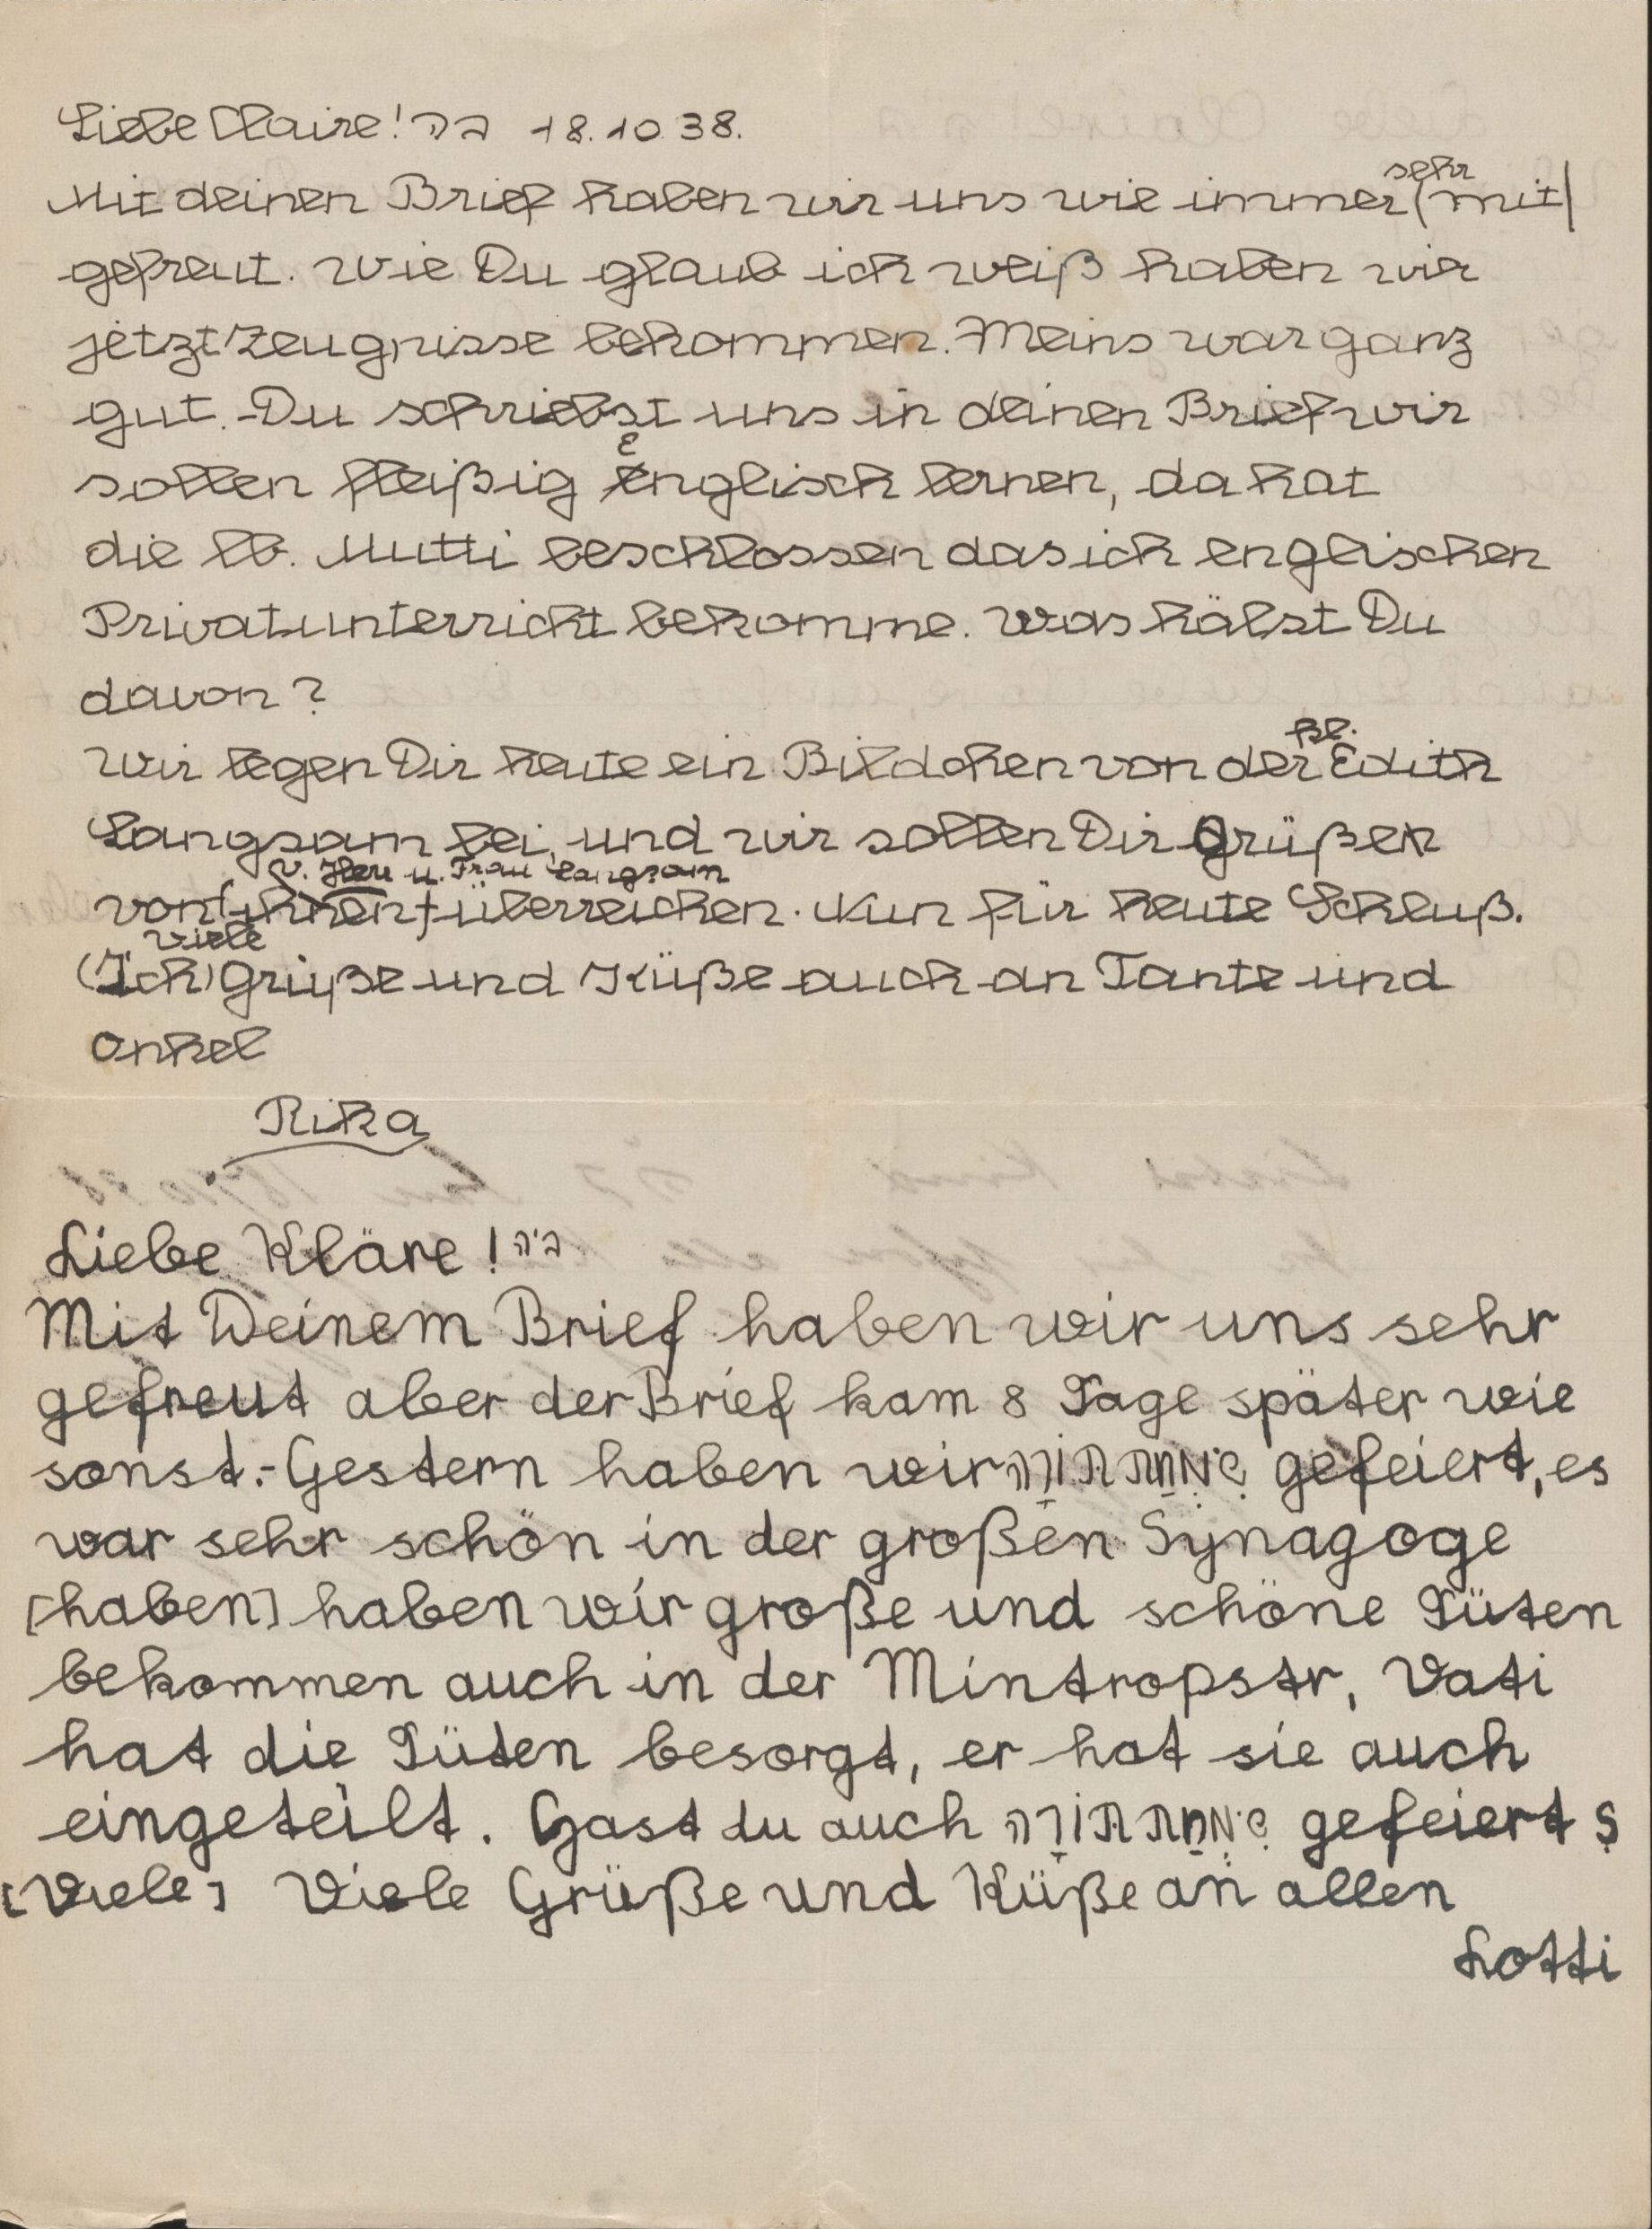 Liebe Claire! בה 18.10.38.
Mit deinen Brief haben wir uns wie immer sehr (mit)
gefreut. Wie Du glaub ich weiß haben wir
jetzt Zeugnisse bekommen. Meins war ganz
gut. Du schriebst uns in deinen Brief wir
sollen fleißig Englisch lernen, da hat
die lb. Mutti beschlossen das ich englischen
Privatunterricht bekomme. Was hälst Du
davon?
Wir legen Dir heute ein Bildchen von der kl. Edith
Langsam bei, und wir sollen Dir Grüßen
v. Herr u. Frau Langsam
von (ihnen) überreichen. Nun für heute Schluß.
(Ich) viele Grüße und Küße auch an Tante und
Onkel
Rika
Liebe Kläre! ב״ה
Mit Deinem Brief haben wir uns sehr
gefreut aber der Brief kam 8 Tage später wie
sonst.- Gestern haben wir שִׂמְחַת תּוֹרָה gefeiert, es
war sehr schön in der großen Synagoge
[haben] haben wir große und schöne Tüten
bekommen auch in der Mintropstr, Vati
hat die Tüten besorgt, er hat sie auch
eingeteilt. Hast du auch שִׂמְחַת תּוֹרָה gefeiert?
[Viele] Viele Grüße und Küße an allen
Lotti